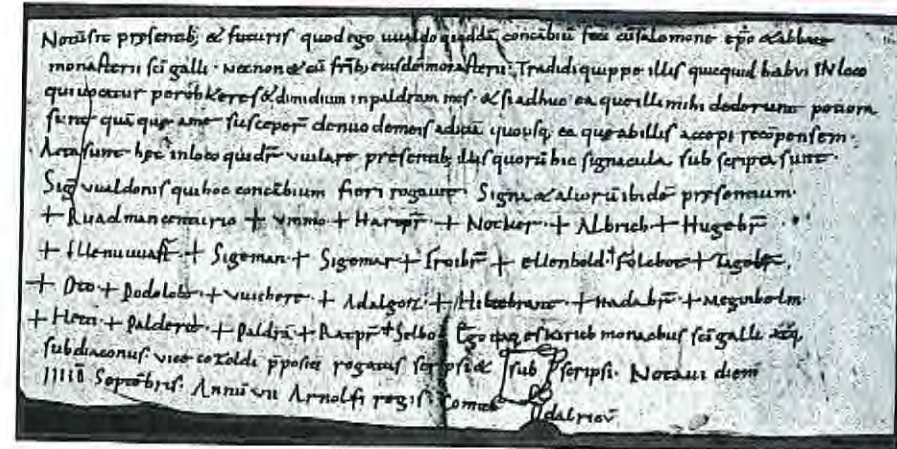 Notū sit presentib; & futuris quod ego uualdo quoddā concābiū feci cū salomone epo & abbate
monasterii sci galli · necnon & cū frib; eiusdē monasterii · Tradidi quippe illis quicquid habui IN loco
qui uocatur & dimidium in paldram mes · & si adhuc ea que illi mihi dederunt potiora
sunt quā que a me susceper̄ denuo de meis adiciā quousq; ea que ab illis accepi recōpensem ·
Acta sunt hec in loco qui dr̄ vuilare presentib; illis quorū hic signacula subscripta sunt ·
Siḡ vualdonis qui hoc concābium fieri rogauit · Signa & aliorū ibidē presentium ·
+ Ruadman centurio + vmmo + Hartpr̄ · + Nocker · + Albrich + Hugebr̄
+ Sigeman · + Sigemar + Erolbr̄ + ellenbold + folchot +
+ Oto + Podololt · + vuichere + Adalgoz · + Hiltebrant · + Hadabr̄ + Meginhelm
+ Heri · + Palderic · + Paldrā + Ratpr̄ + Selbo Ego monachus sci galli
subdiaconus · vice cotoldi p̄positi rogatus scripsi & subscripsi · Notaui diem
Septēbris · Annū vii Arnolfi regis Comitē Odalricū